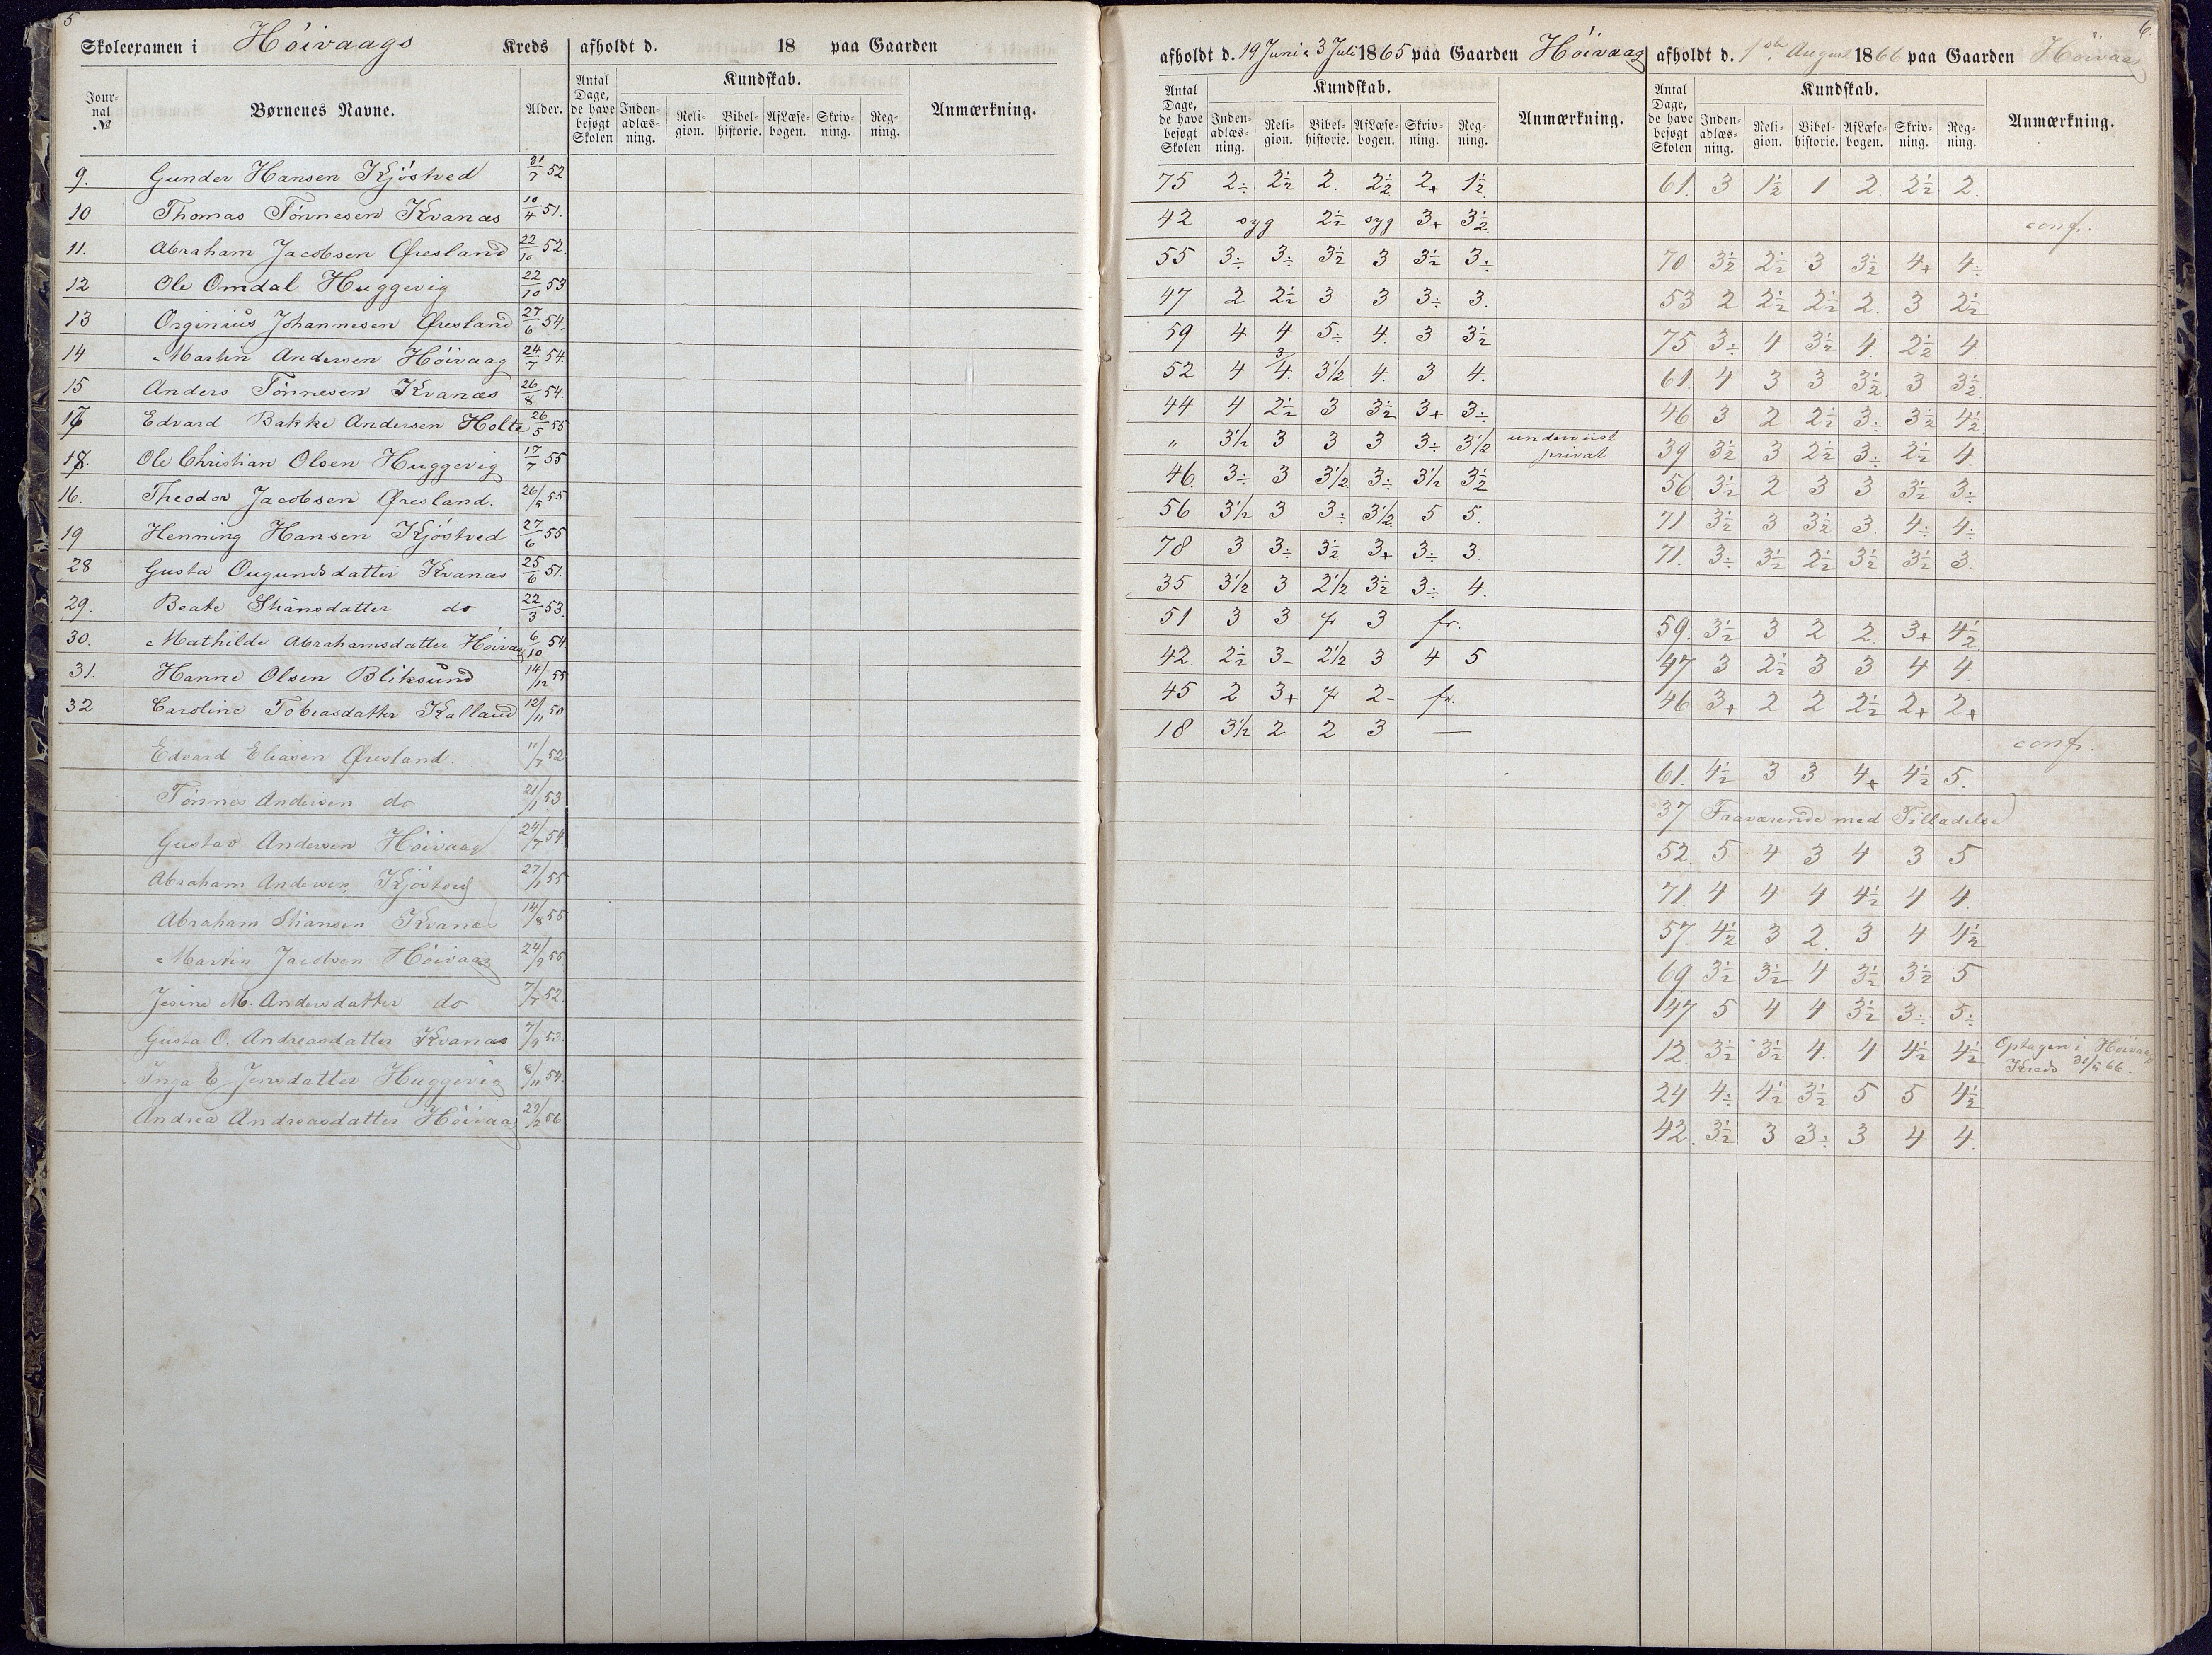 5
Skoleexamen i Höivaags Kreds afholdt d. 18 paa Gaarden
Journal № Børnenes Navne. Alder. Antal Dage, de have besøgt Skolen Kundskab. Indenadlæsning. Religion. Bibelhistorie. Aflæsebogen. Skrivning. Regning. Anmærkning.
9. Gunder Hansen Kjöstved 31/7 52
10 Thomas Tönnesen Kvanæs 10/4 51.
11. Abraham Jacobsen Øresland 22/10 52.
12 Ole Omdal Huggevig 22/10 53
13 Orginius Johannesen Øresland 27/6 54.
14 Martin Andersen Höivaag 24/7 54.
15 Anders Tönnesen Kvanæs 26/8 54.
17 Edvard Bakke Andersen Holte 26/5 55
18. Ole Christian Olsen Huggevig 17/7 55
16. Theodor Jacobsen Øresland. 26/5 55
19 Henning Hansen Kjöstved 27/6 55
28 Gusta Ougundsdatter Kvanæs 25/6 51.
29. Beate Stiansdatter do 22/3 53.
30. Mathilde Abrahamsdatter Höivaag 6/10 54
31. Hanne Olsen Bliksund 14/12 55
32 Caroline Tobiasdatter Kalland 12/11 50
Edvard Eliasen Øresland. 11/7 52
Tönnes Andersen do 21/1 53
Gustav Andersen Höivaag 24/7 54
Abraham Andersen Kjöstved 27/1 55
Abraham Stiansen Kvanæs 14/8 55
Martin Jacobsen Höivaag 24/9 55
Jesine M. Andersdatter do 7/7 52.
Gusta O. Andreasdatter Kvanæs 7/9 53.
Inga E Jensdatter Huggevig 8/11 54.
Andrea Andreasdatter Höivaag 29/2 56
6.
afholdt d. 19 Juni & 3 Juli 1865 paa Gaarden Höivaag afholdt d. 1ste August 1866 paa Gaarden Höivaag
Antal Dage, de have besøgt Skolen Kundskab. Indenadlæsning. Religion. Bibelhistorie. Aflæsebogen. Skrivning. Regning. Anmærkning. Antal Dage, de have besøgt Skolen Kundskab. Indenadlæsning. Religion. Bibelhistorie. Aflæsebogen. Skrivning. Regning. Anmærkning.
75 2÷ 2½ 2. 2½ 2+ 1½ 61. 3 1½ 1 2. 2½ 2.
42 syg 2½ syg 3+ 3½ conf.
55 3÷ 3÷ 3½ 3 3½ 3÷ 70 3½ 2½ 3 3½ 4+ 4÷
47 2 2½ 3 3 3÷ 3. 53 2 2½ 2½ 2. 3 2½
59 4 4 5÷ 4. 3 3½ 75 3÷ 4 3½ 4. 2½ 4.
52 4 3/4. 3½ 4. 3 4. 61. 4 3 3 3½ 3 3½
44 4 2½ 3 3½ 3+ 3÷ 46 3 2 2½ 3÷ 3½ 4½
„ 3½ 3 3 3 3÷ 3½ underviist privat 39 3½ 3 2½ 3÷ 2½ 4.
46. 3÷ 3 3½ 3÷ 3½ 3½ 56 3½ 2 3 3 3½ 3÷
56 3½ 3 3÷ 3½ 5 5. 71 3½ 3 3½ 3. 4÷ 4÷
78 3 3÷ 3½ 3+ 3÷ 3. 71. 3÷ 3½ 2½ 3½ 3½ 3.
35 3½ 3 2½ 3½ 3÷ 4.
51 3 3 fr 3 fr. 59. 3½ 3 2 2. 3+ 4½
42. 2½ 3- 2½ 3 4 5 47 3 2½ 3 3 4 4.
45 2 3+ fr 2- fr. 46 3+ 2 2 2½ 2+ 2+
18 3½ 2 2 3 — conf.
61. 4½ 3 3 4+ 4½ 5.
37 Fraværende med Tilladelse
52 5 4 3 4 3 5
71. 4 4 4 4½ 4 4.
57. 4½ 3 2. 3 4 4½
69 3½ 3½ 4 3½ 3½ 5
47 5 4 4 3½ 3÷ 5÷
12. 3½ 3½ 4. 4 4½ 4½ Optagen i Höivaag
Kreds 30/5 66.
24 4÷ 4½ 3½ 5 5 4½
42. 3½ 3 3÷ 3 4 4.